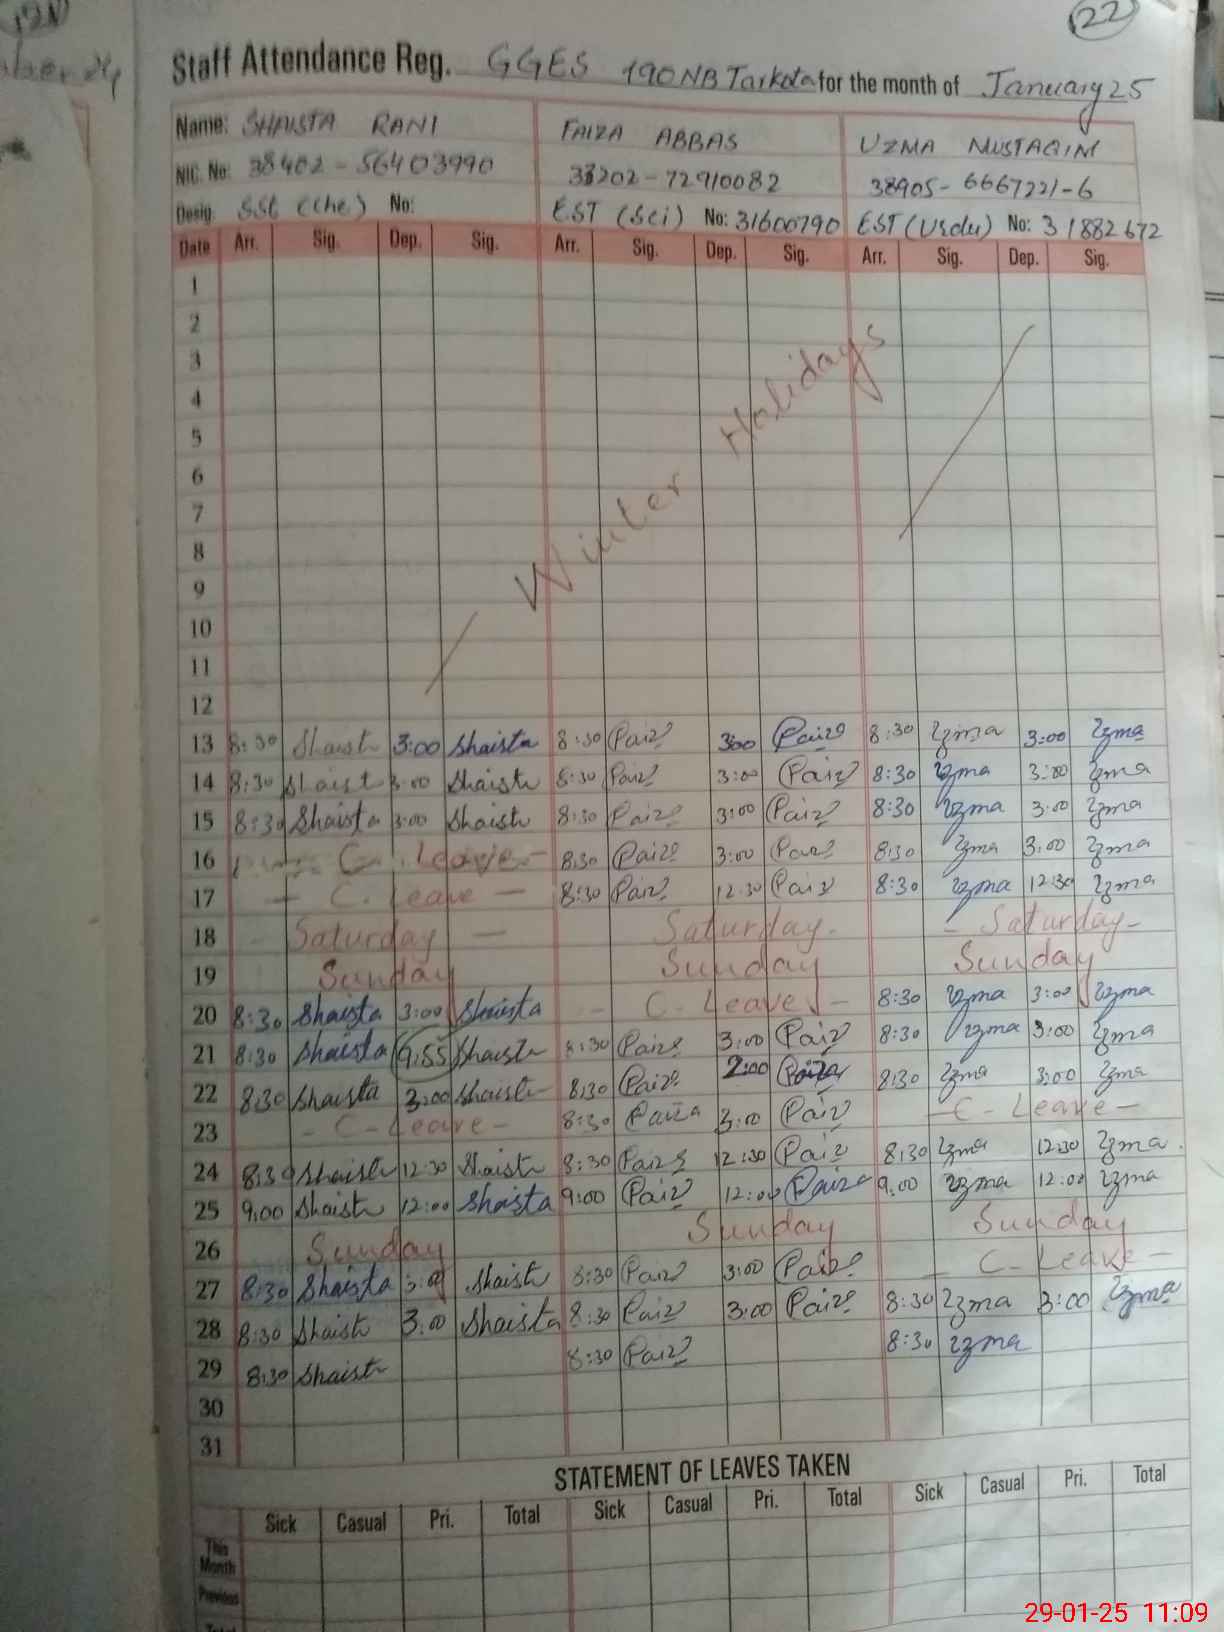 22
Staff Attendance Reg. GGES 190NB Tarkota for the month of January 25
Name: SHAISTA RANI FAIZA ABBAS UZMA MUSTAQIM
NIC. No: 38402-56403990 38202-72910082 38905-6667221-6
Desig. SSE (Che) No: EST (Sci) No: 31600790 EST (Urdu) No: 31882672
Date Arr. Sig. Dep. Sig. Arr. Sig. Dep. Sig. Arr. Sig. Dep. Sig.
1
2
3
4
5
6
7
8
9
10
11
12
Winter Holidays
13 8:30 Shaista 3:00 Shaista 8:30 Faiza 3:00 Faiza 8:30 Uzma 3:00 Uzma
14 8:30 Shaista 3:00 Shaista 8:30 Faiza 3:00 Faiza 8:30 Uzma 3:00 Uzma
15 8:30 Shaista 3:00 Shaista 8:30 Faiza 3:00 Faiza 8:30 Uzma 3:00 Uzma
16 C. Leave - 8:30 Faiza 3:00 Faiza 8:30 Uzma 3:00 Uzma
17 - C. Leave - 8:30 Faiza 12:30 Faiza 8:30 Uzma 12:30 Uzma
18 - Saturday - Saturday - - Saturday -
19 Sunday Sunday Sunday
20 8:30 Shaista 3:00 Shaista - C. Leave - 8:30 Uzma 3:00 Uzma
21 8:30 Shaista 9:55 Shaista 8:30 Faiza 3:00 Faiza 8:30 Uzma 3:00 Uzma
22 8:30 Shaista 3:00 Shaista 8:30 Faiza 2:00 Faiza 8:30 Uzma 3:00 Uzma
23 - C - Leave - 8:30 Faiza 3:00 Faiza - C - Leave -
24 8:30 Shaista 12:30 Shaista 8:30 Faiza 12:30 Faiza 8:30 Uzma 12:30 Uzma
25 9:00 Shaista 12:00 Shaista 9:00 Faiza 12:00 Faiza 9:00 Uzma 12:00 Uzma
26 Sunday Sunday Sunday
27 8:30 Shaista 3:00 Shaista 8:30 Faiza 3:00 Faiza - C. Leave -
28 8:30 Shaista 3:00 Shaista 8:30 Faiza 3:00 Faiza 8:30 Uzma 3:00 Uzma
29 8:30 Shaista 8:30 Faiza 8:30 Uzma
30
31
STATEMENT OF LEAVES TAKEN
Sick Casual Pri. Total Sick Casual Pri. Total Sick Casual Pri. Total
This Month
Previous
Total
29-01-25 11:09